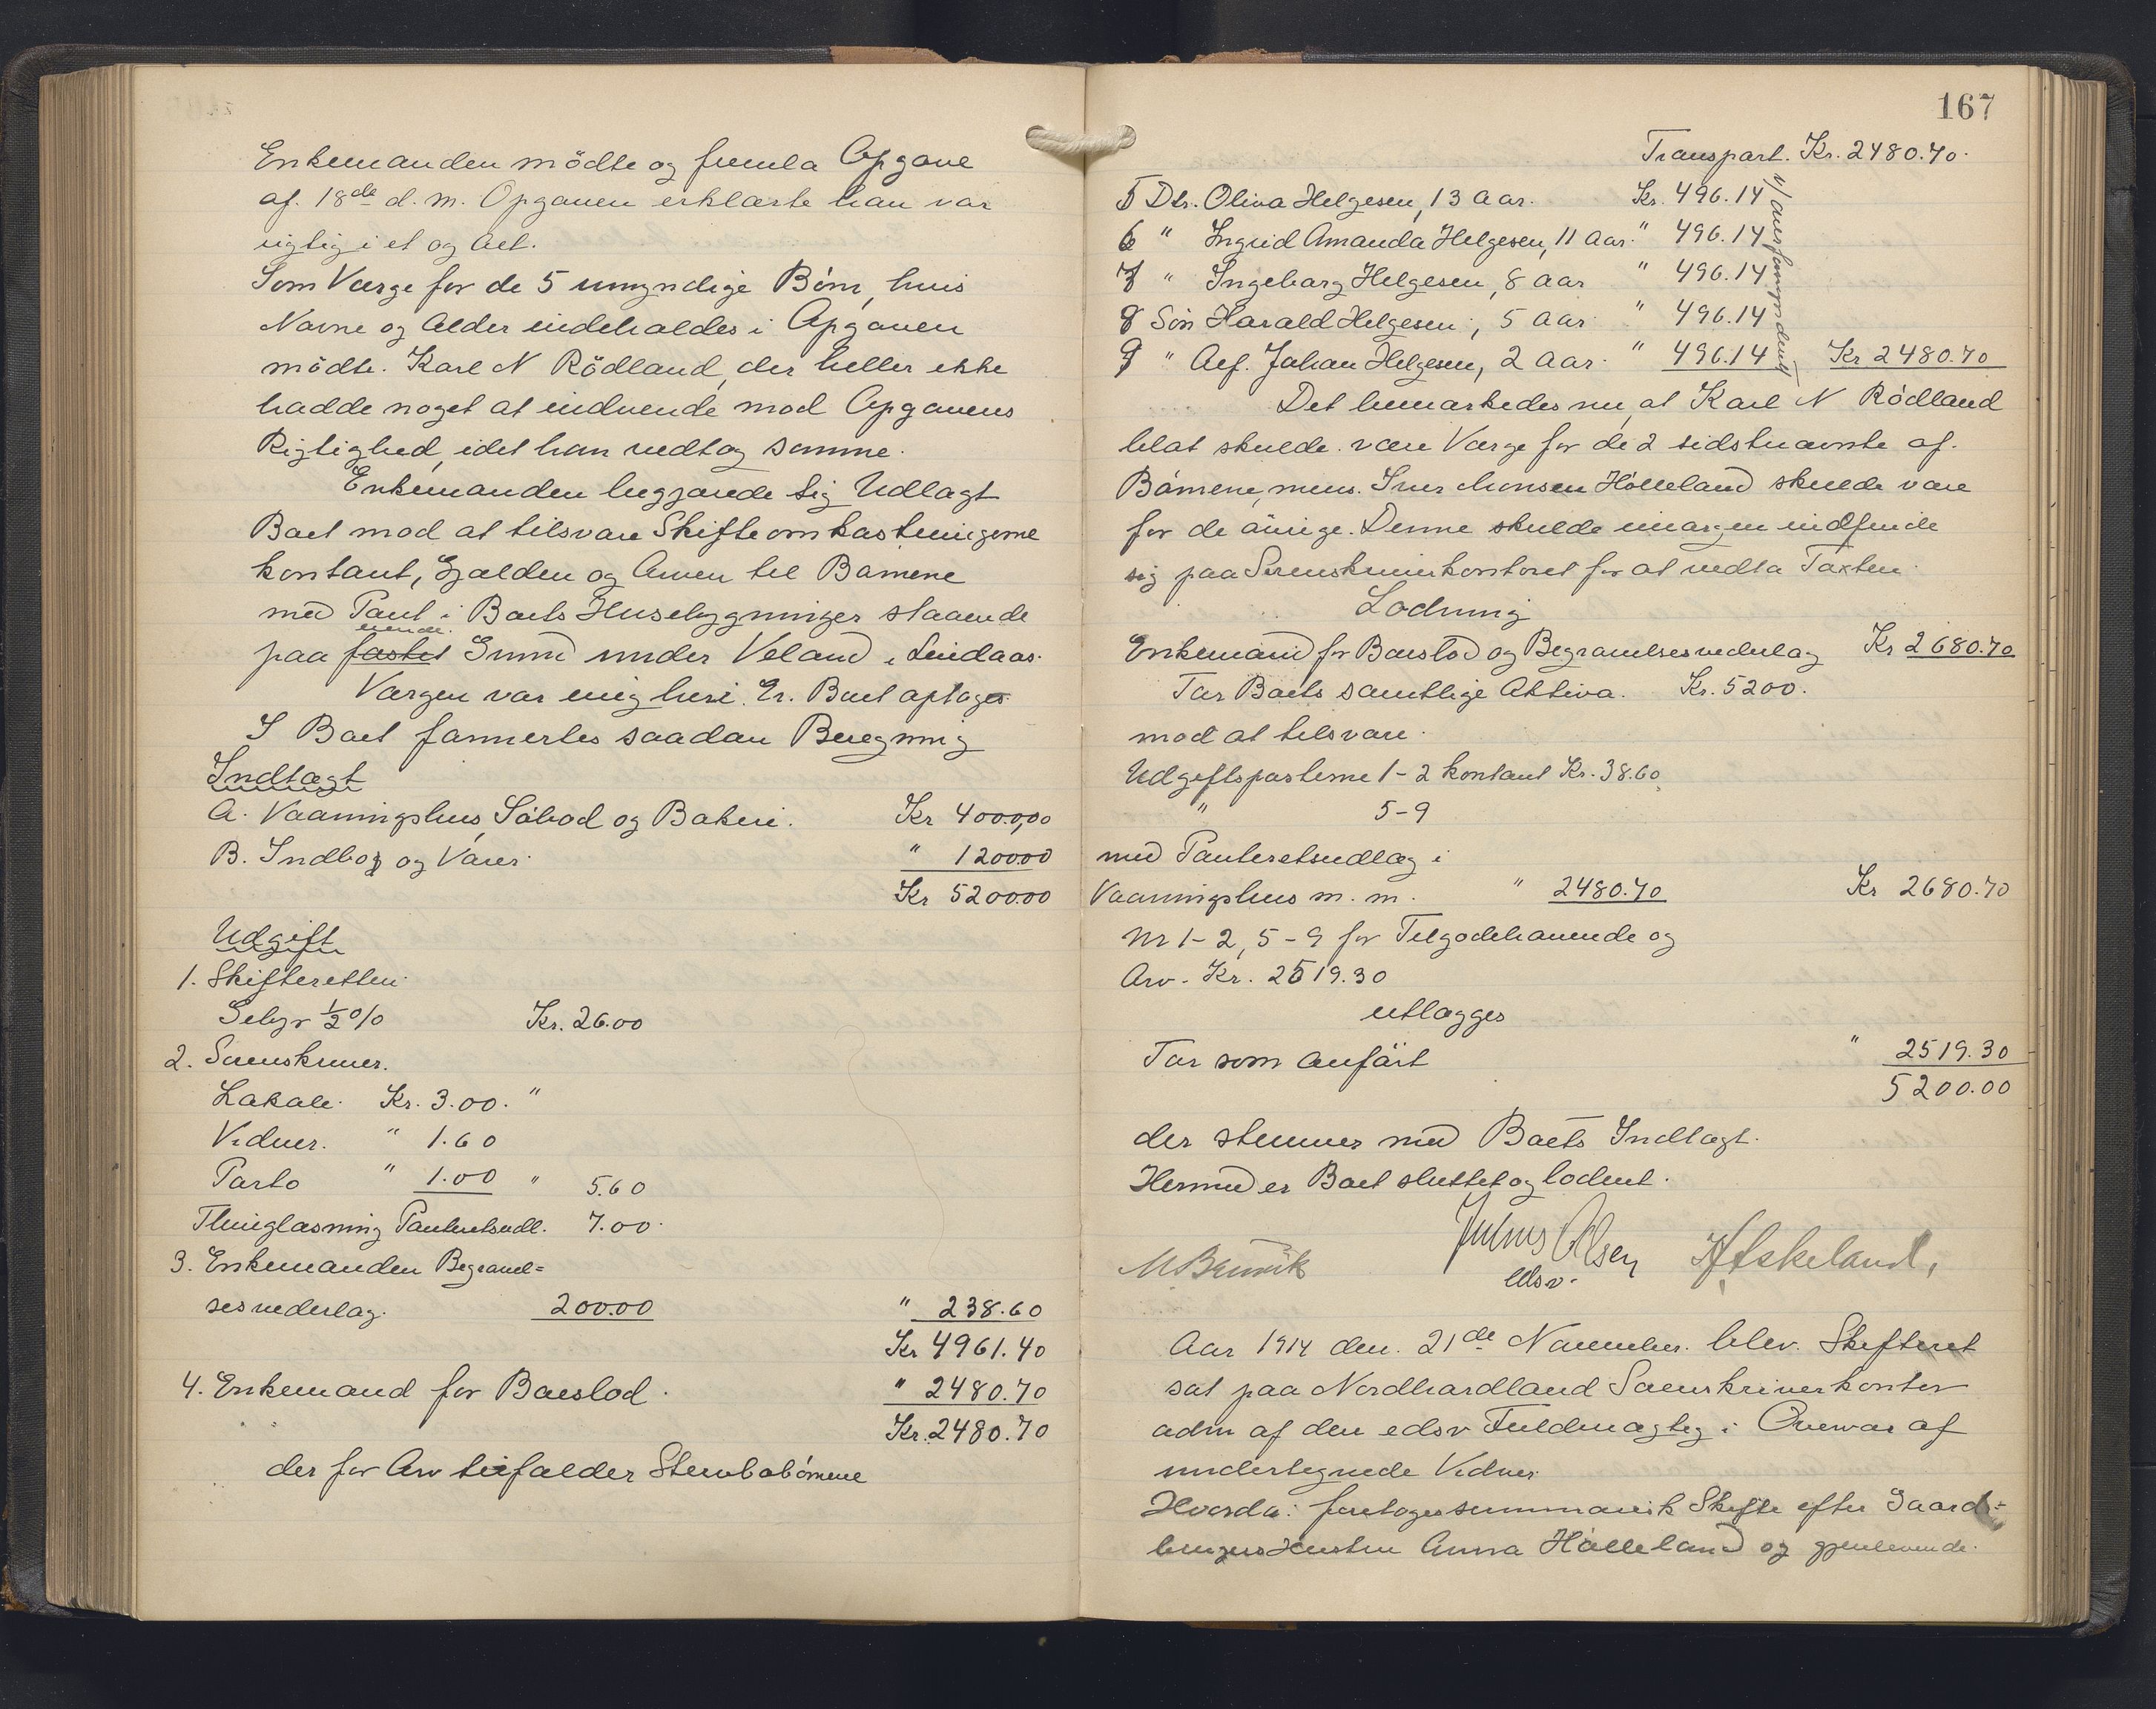 Enkemanden mödte og fremla Opgave
af. 18de d. m. Opgaven erklærte han var
rigtig i et og Alt.
Som Værge for de 5 umyndige Börn, hvis
Navne og Alder indeholdes i Opgaven
mödte. Karl N Rödland, der heller ikke
hadde noget at indvende mod Opgavens
Rigtighed, idet han vedtog samme.
Enkemanden begjærede sig Udlagt
Boet mod at tilsvare Skifteomkostningerne
kontant, Gjælden og Arven til Börnene
med Pant i Boets Husebygninger staaende
eiende.
paa fæstet Grund under Veland i Lindaas.
Værgen var enig heri. Er. Boet optages
I Boet formertes saadan Beregning
Indtægt
A. Vaaningshus, Söbod og Bakeri. Kr 4000,00
B. Indbo og Varer. " 1200.00
Kr 5200.00
Udgift
1. Skifteretten.
Gebyr ½% Kr. 26.00
2. Sorenskriver.
Lokale. Kr. 3.00. "
Vidner. " 1.60
Porto " 1.00 " 5.60
Thinglæsning Panteretsudl. 7.00.
3. Enkemanden Begravel=
sesvederlag. 200.00 " 238.60
Kr 4961.40
4. Enkemand for Boeslod. " 2480.70
Kr. 2480.70
der for Arv tilfalder Stervbobörnene
167
Transport. Kr. 2480.70.
5 Dtr. Oliva Helgesen, 13 Aar. Kr. 496.14
6 " Ingrid Amanda Helgesen, 11 Aar. " 496.14
7 " Ingeborg Helgesen, 8 Aar " 496.14
8 Sön Harald Helgesen, 5 Aar " 496.14
9 " Alf. Johan Helgesen, 2 Aar. " 496.14 Kr 2480.70
Det bemærkedes nu, at Karl N Rödland
blot skulde være Værge for de 2 sidstnævnte af.
Börnene, mens. Iver Monsen Hölleland skulde være
for de övrige. Denne skulde imorgen indfinde
sig paa Sorenskriverkontoret for at vedta Taxten.
Lodning
Enkemand for Boeslod og Begravelsesvederlag Kr 2680.70
Tar Boets samtlige Aktiva. Kr. 5200.
mod at tilsvare.
Udgiftsposterne 1-2 kontant Kr. 38.60
" 5-9
med Panteretsudlæg i
Vaaningshus m. m. " 2480.70 Kr 2680.70
Nr 1-2, 5-9 for Tilgodehavende og
Arv. Kr. 2519.30
utlægges
Tar som anfört " 2519.30
5200.00
der stemmer med Boets Indtægt.
Hermed er Boet sluttet og loddet.
Julius Olsen
edsv.
Aar 1914 den. 21de November. blev. Skifteret
sat paa Nordhordland Sorenskriverkontor
adm af den edsv Fuldmægtig i Overvær af
undertegnede Vidner
Hvorda: foretoges summarisk Skifte efter Gaard=
brugers Hustru Anna Hölleland og gjenlevende.